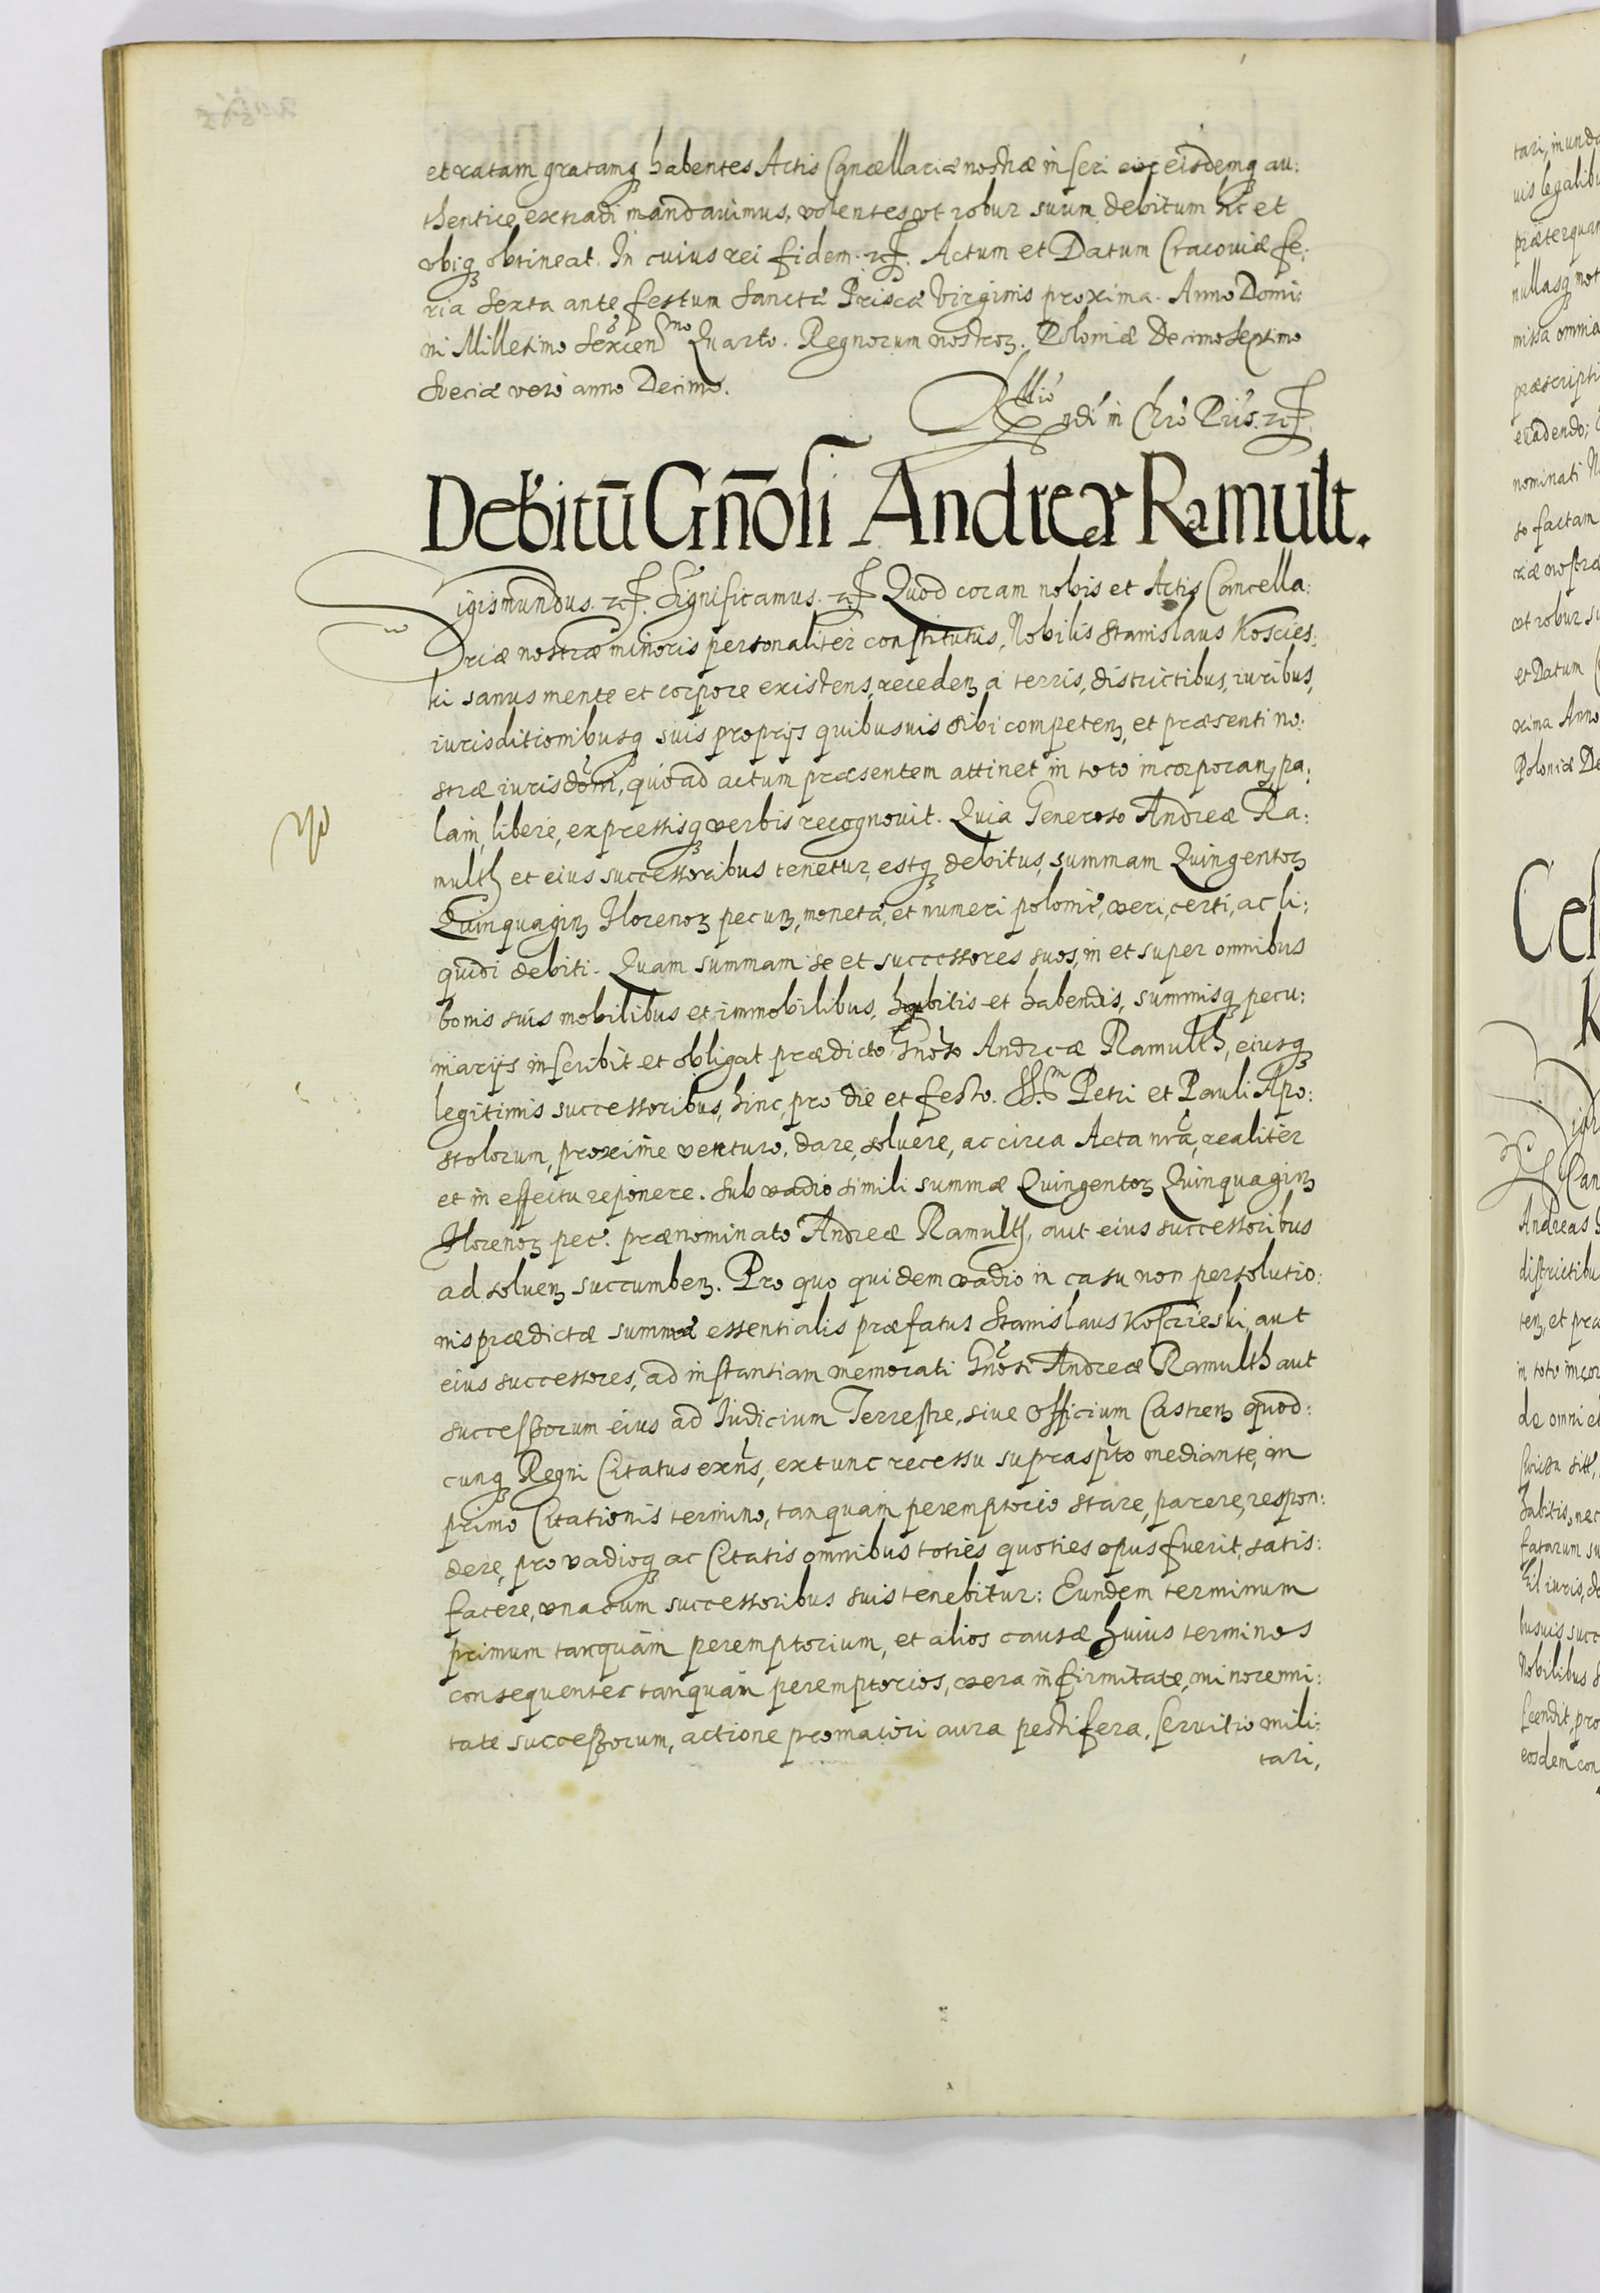 et ratam gratamq habentes Actis Cancellariæ nostræ inseri eisdemq au:
thentice extradi mandavimus, volentes vt robur suum debitum hic et
vbiq obtineat. In cuius rei fidem. Actum et Datum Cracoviæ fe:
ria sexta ante festum Sanctæ Priscæ Virginis proxima. Anno Domi:
ni Millesimo Sexcen mo Quarto. Regnorum nostror. Poloniæ Decimo Septimo
Sveciæ vero anno Decimo.
in Chro
Debitū Gn̄osi Andreæ Ramult.
Sigismundus. Significamus. Quod coram nobis et Actis Cancella:
riæ nostræ minoris personaliter constitutus, Nobilis Stanislaus Koscies:
ki sanus mente et corpore existens, receden à terris, districtibus, iuribus,
iurisditionibusq suis proprijs quibusuis sibi competen, et præsenti no:
stræ iurisdoni, quo ad actum præsentem attinet in toto incorporan, pa:
lam, libere, expressisq verbis recognovit. Quia Generoso Andreæ Ra:
multh et eius successoribus tenetur, estq debitus, summam Quingentor
Quinquagin Florenor pecun, moneta, et numeri polonic, veri, certi, ac li:
quidi debiti. Quam summam se et successores suos, in et super omnibus
bonis suis mobilibus et immobilibus, habitis et habendis, summisq pecu:
niarijs inscribit et obligat prædicto Gnoso Andreæ Ramulth, eiusq
legitimis successoribus, hinc, pro die et festo. SS. Petri et Pauli Apo:
stolorum, proxime venturo, dare, soluere, ac circa Acta nra, realiter
et in effectu reponere. Sub vadio simili summæ Quingentor Quinquagin
Florenor pec. prænominato Andreæ Ramulth, aut eius successoribus
ad soluen succumben. Pro quo quidem vadio in casu non persolutio:
nis prædictæ summæ essentialis præfatus Stanislaus Koscieski, aut
eius successores, ad instantiam memorati Gnosi Andreæ Ramulth aut
successorum eius ad Iudicium Terrestre, siue Officium Castren quod:
cunq Regni Citatus exns, extunc recessu supraspto mediante, in
primo Citationis termino, tanquam peremptorio stare, parere, respon:
dere, pro vadioq ac Citatis omnibus toties quoties opus fuerit, satis:
facere, vna cum successoribus suis tenebitur: Eundem terminum
primum tanquam peremptorium, et alios causæ huius terminos
consequenter tanquam peremptorios, vera infirmitate, minorenni:
tate successorum, actione pro maiori aura pestifera, servitio mili:
tari,